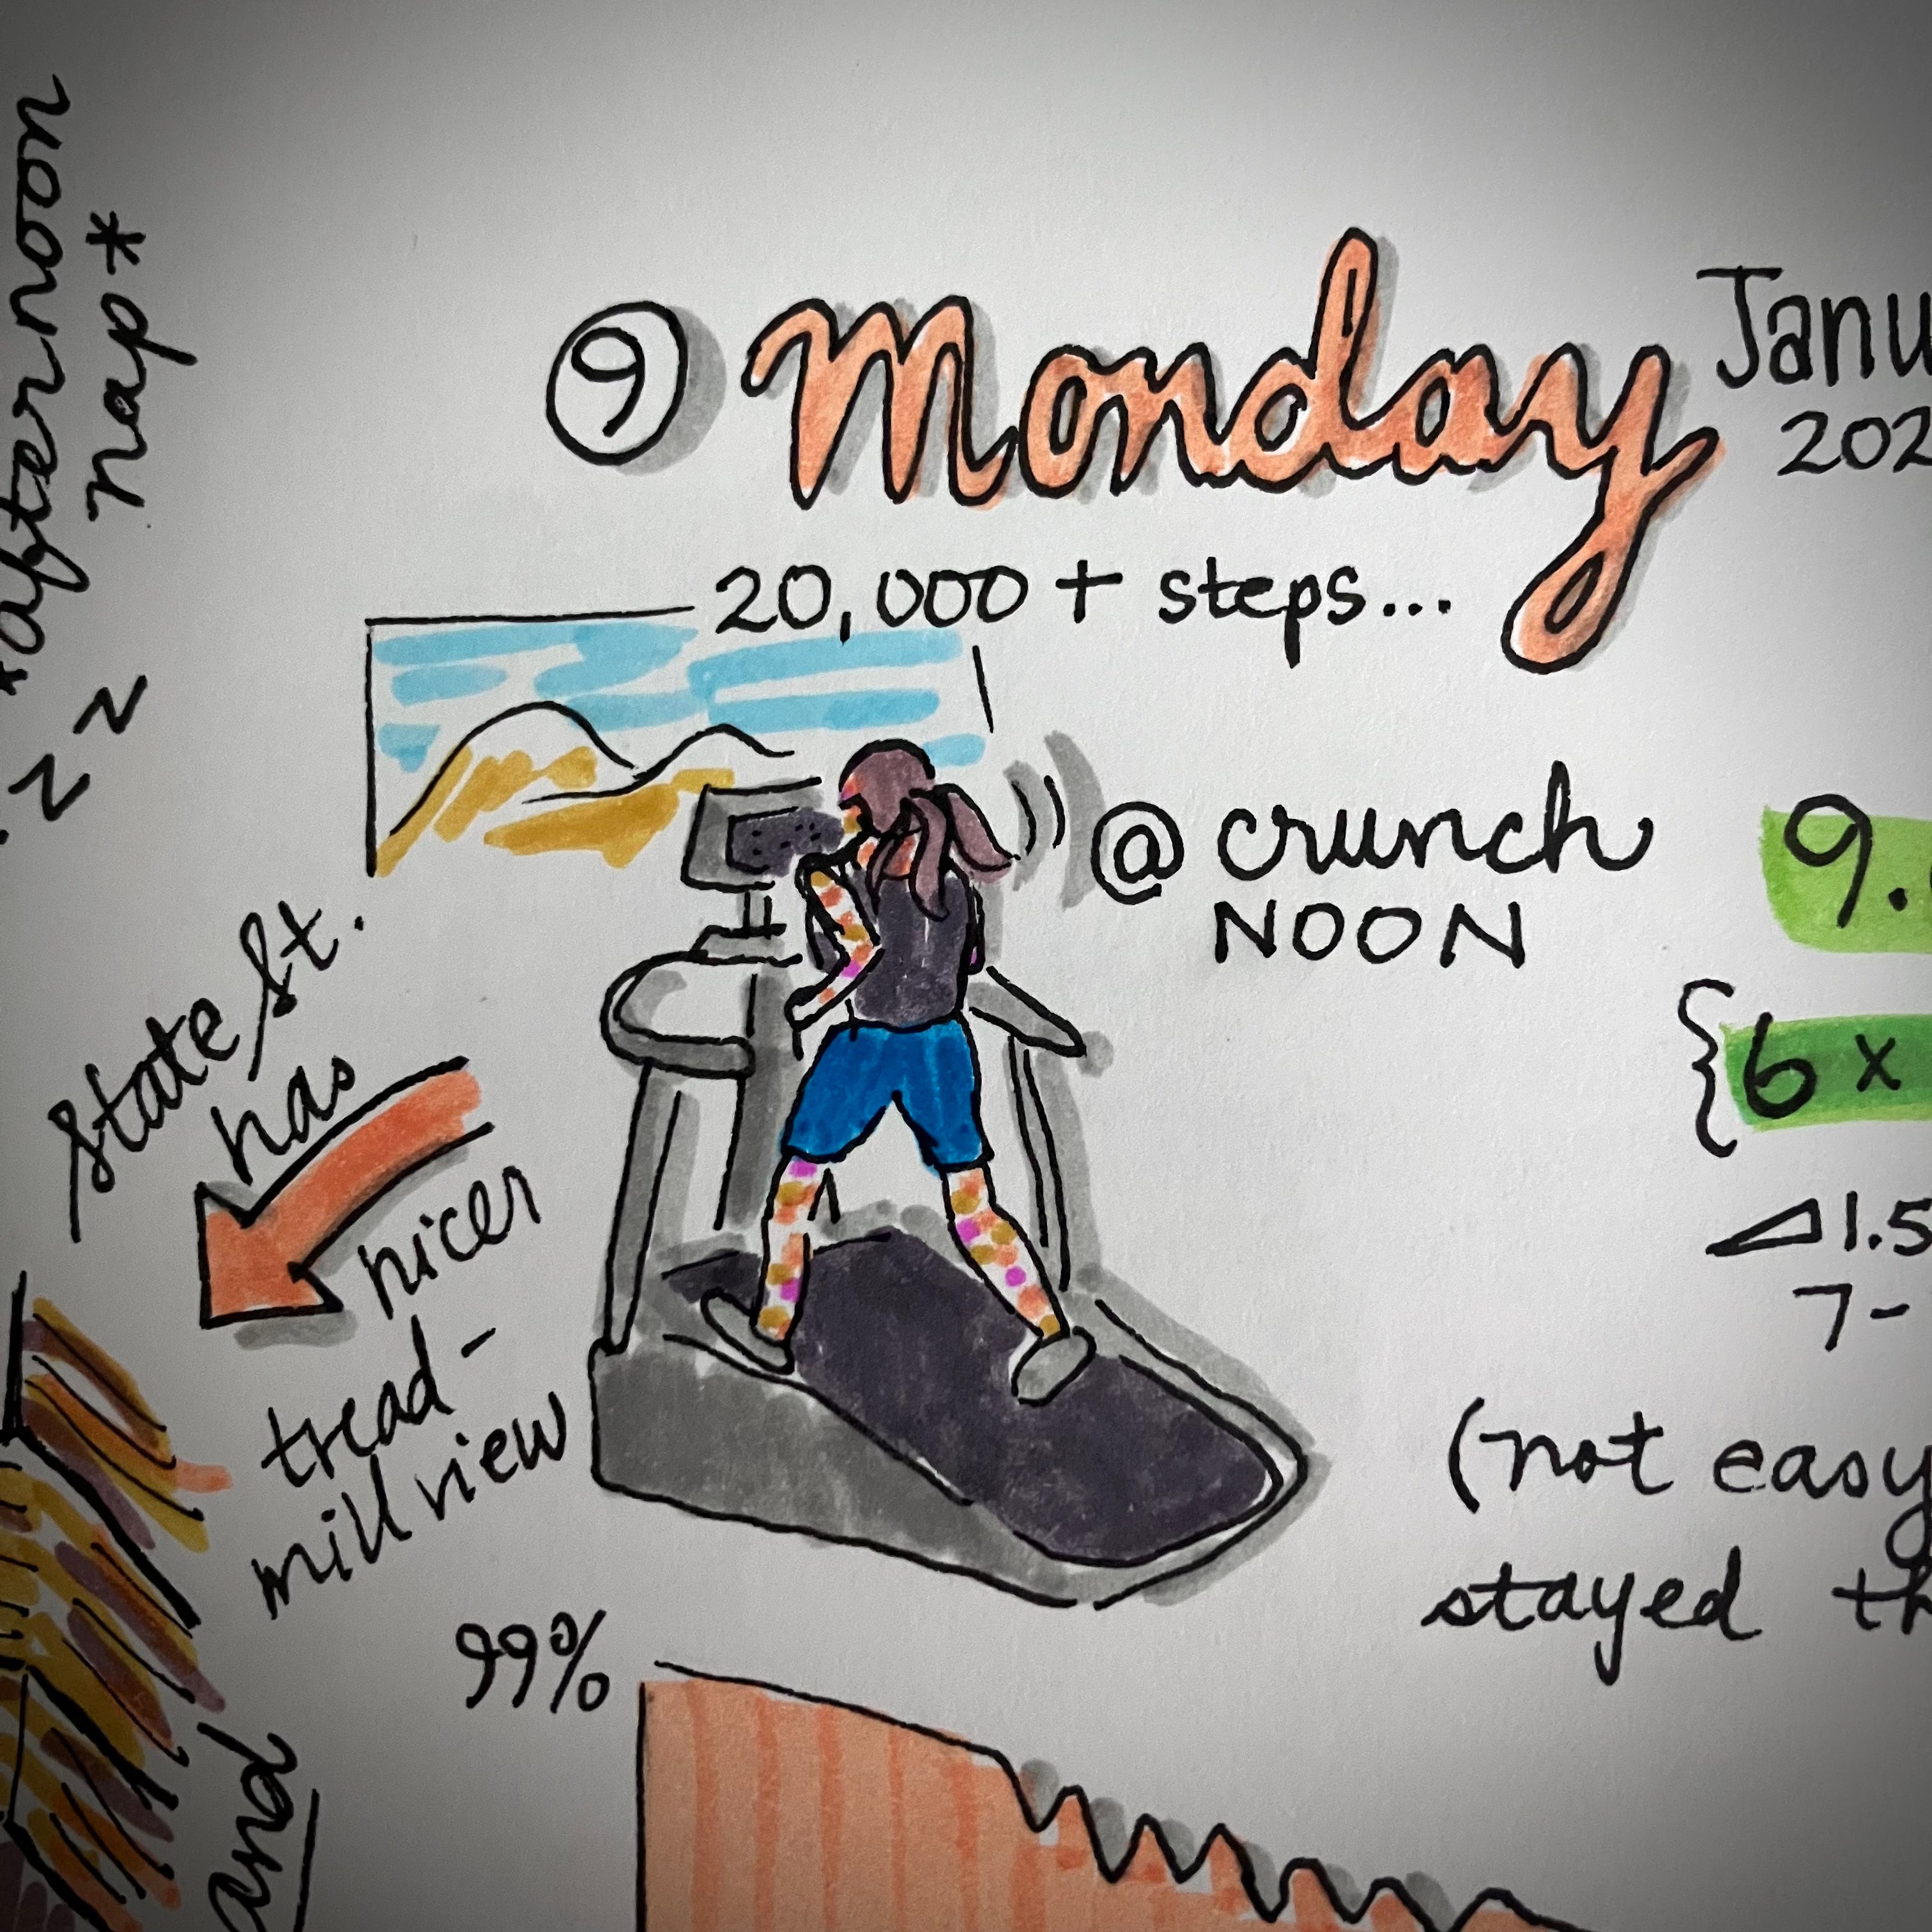 *afternoon
nap*
z z
9 Monday
Janu
202
20,000 + steps...
@ crunch
NOON
9.
{6 x
1.5
7-
State St.
has
nicer
tread-
mill view
(not easy
stayed th
99%
and